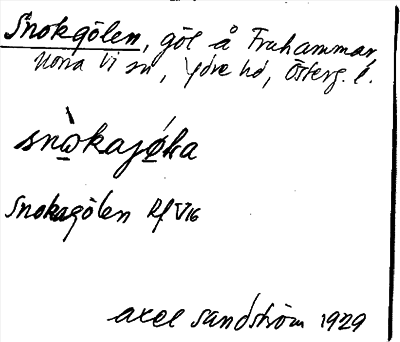 Snokgölen, göl å Fruhammar,
Norra Vi sn, Ydre hd, Österg. l.
snòkajǿlɩa
Snokagölen Rf V16
Axel Sandström 1929